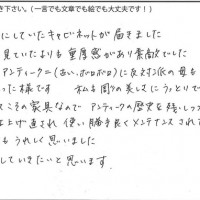 き下さい。(一言でも文章でも絵でも大丈夫です！)
にしていたキャビネットが届きました
見ていたよりも重厚感があり素敵でした
アンティーク=(古い、ボロボロ)に反対派の母も
った様です 私も周りの美しさにうっとりで
こその家具なので アンティークの歴史を残しつつ
上げ直され 使い勝手良くメンテナンスされて
もうれしく思いました
していきたいと思います。